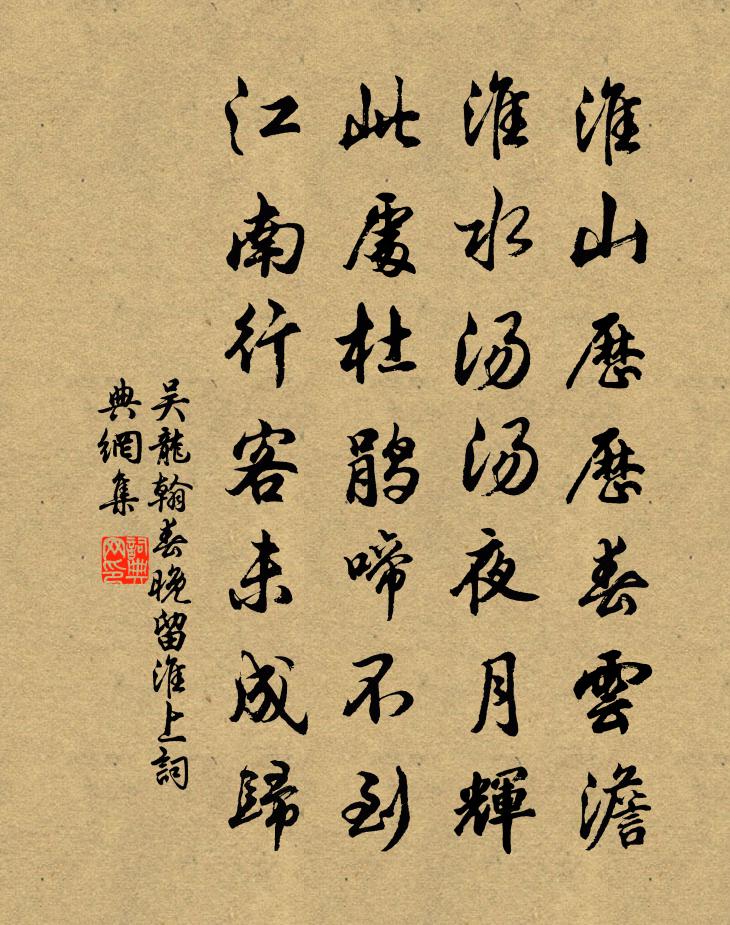 淮山歷歷春雲澹
淮水湯湯夜月輝
此處杜鵑啼不到
江南行客未成歸
吴龍翰春晚留淮上詞
典網集
詞典
网印